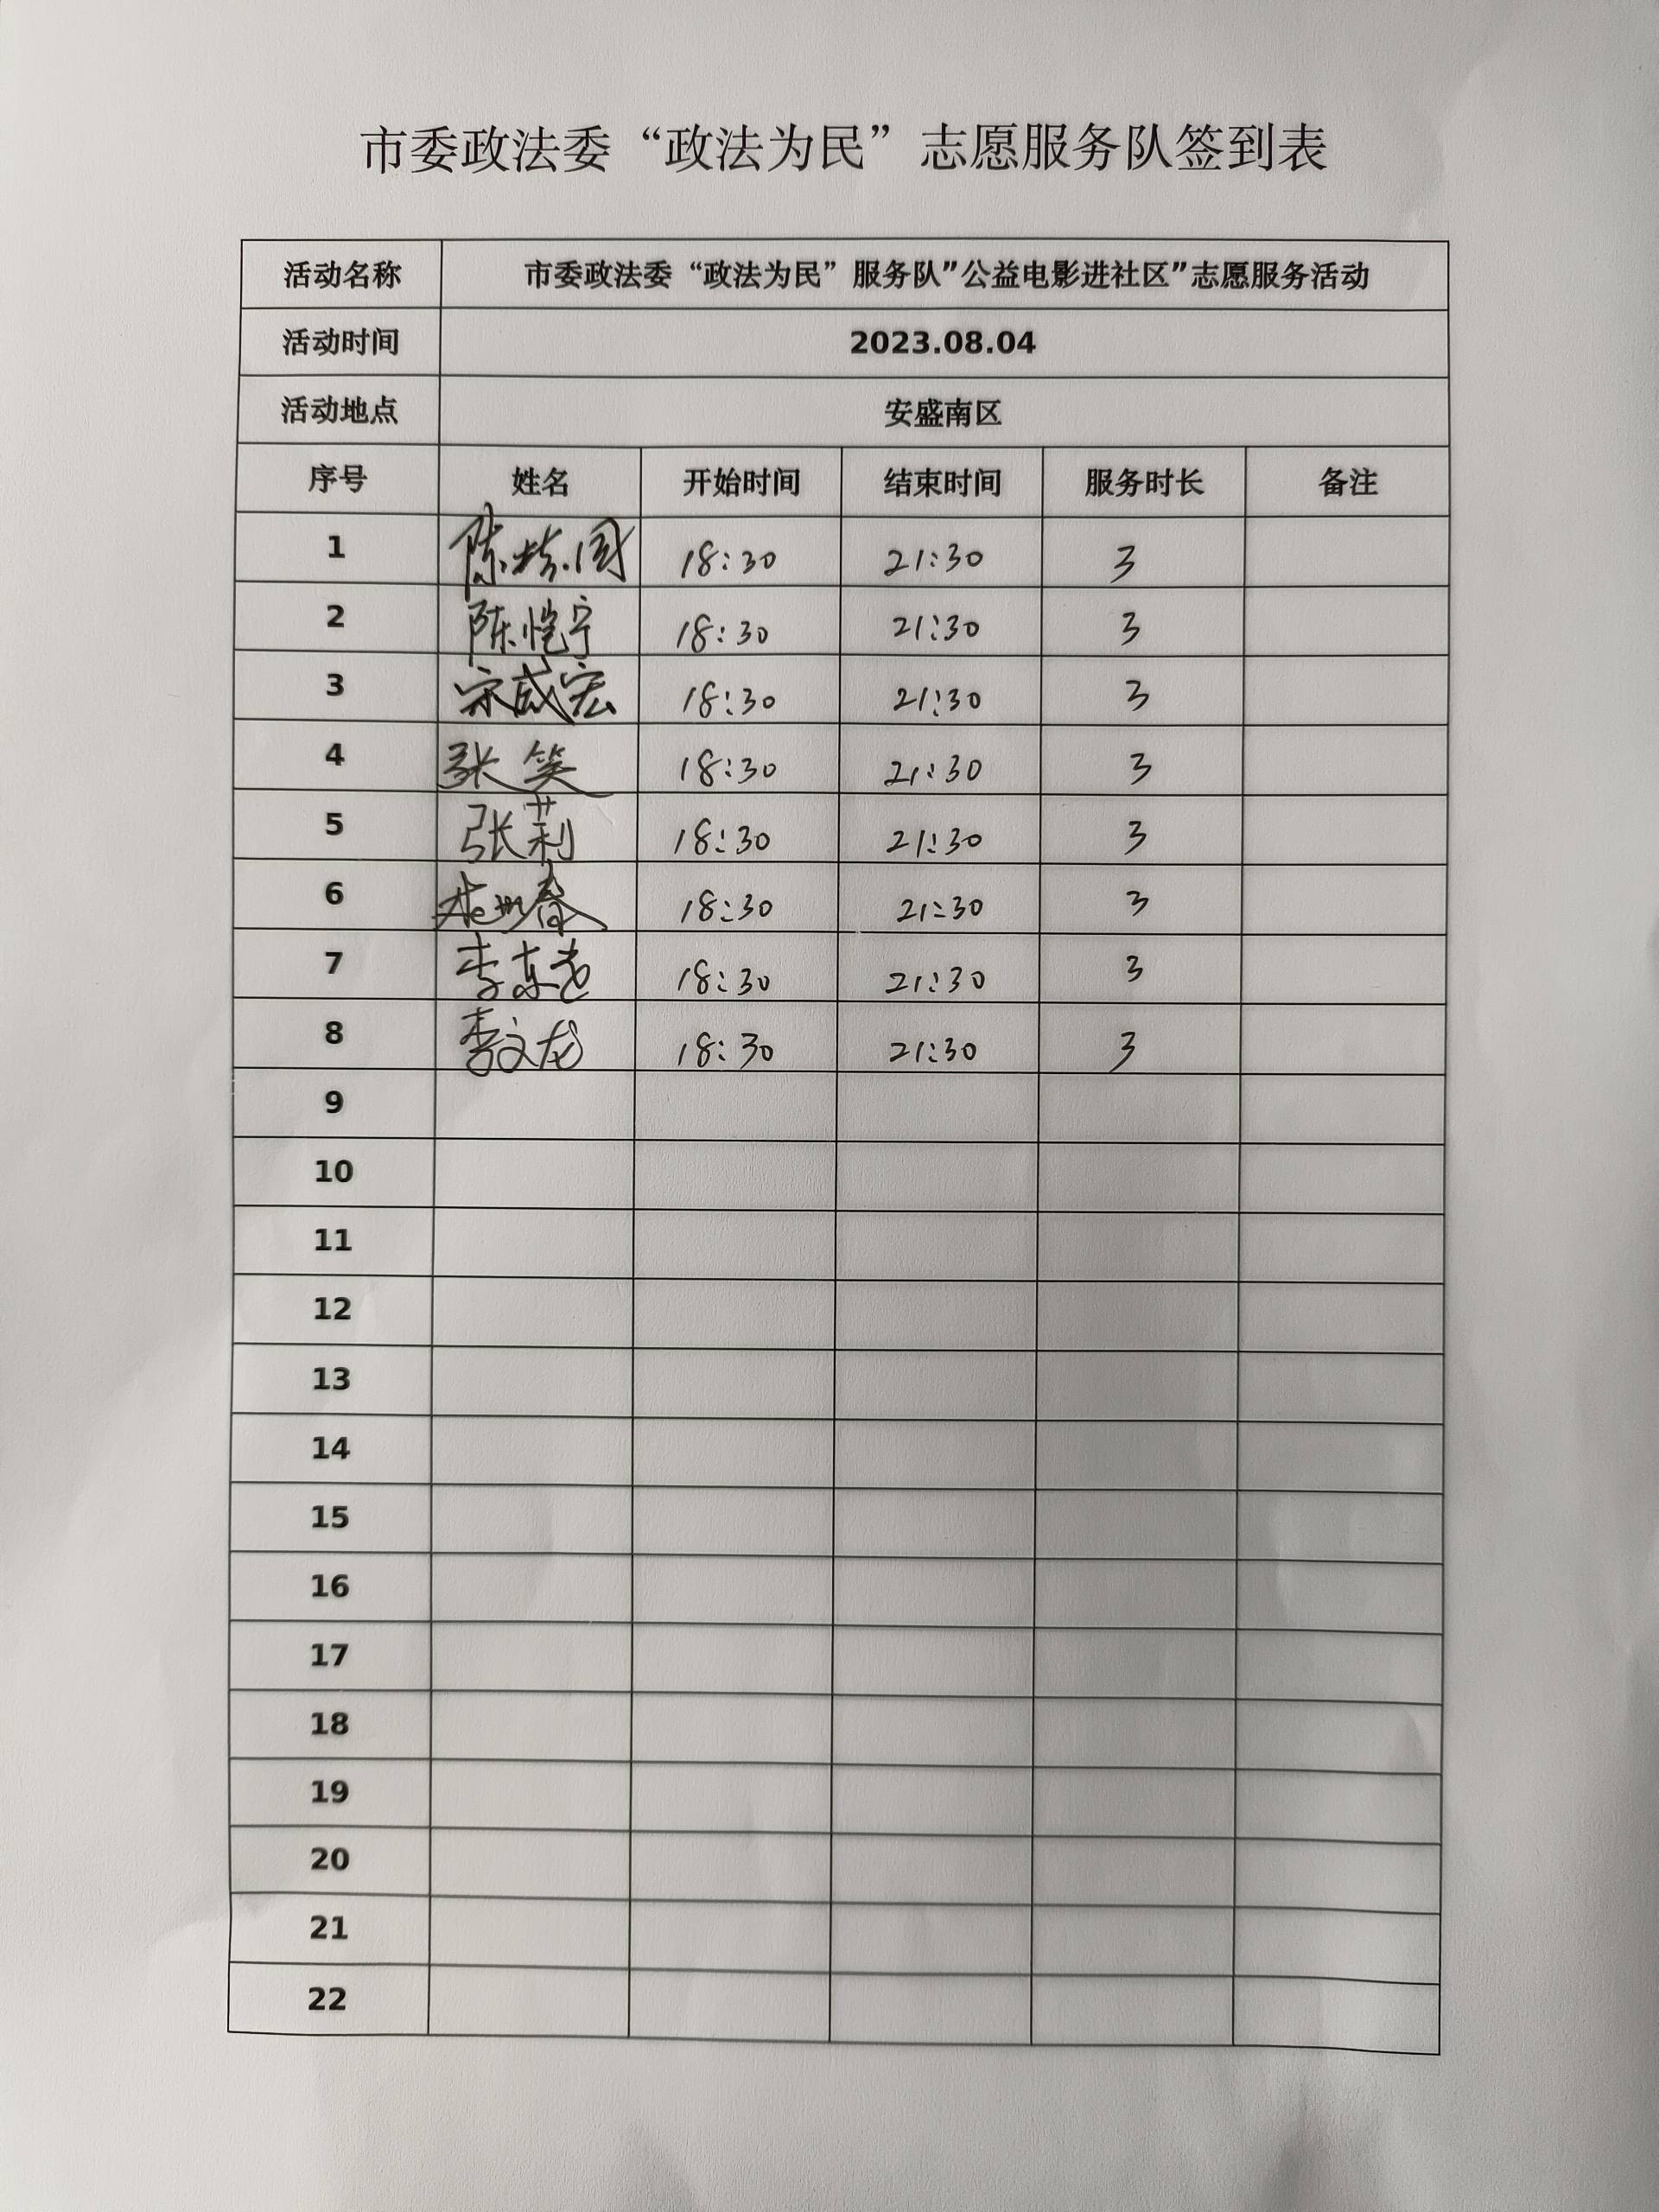 市委政法委“政法为民”志愿服务队签到表
活动名称 市委政法委“政法为民”服务队”公益电影进社区”志愿服务活动
活动时间 2023.08.04
活动地点 安盛南区
序号 姓名 开始时间 结束时间 服务时长 备注
1 18:30 21:30 3
2 陈恺宁 18:30 21:30 3
3 宋威宏 18:30 21:30 3
4 张笑 18:30 21:30 3
5 张莉 18:30 21:30 3
6 18:30 21:30 3
7 18:30 21:30 3
8 李文龙 18:30 21:30 3
9
10
11
12
13
14
15
16
17
18
19
20
21
22